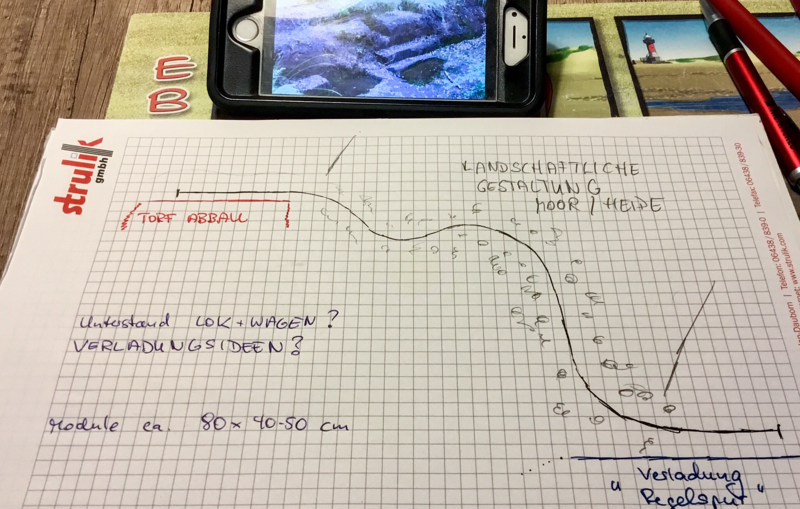 E
B
strulik
gmbh
LANDSCHAFTLICHE
GESTALTUNG
MOOR / HEIDE
TORF ABBAU
Unterstand LOK + WAGEN?
VERLADUNGSIDEEN?
Module ca. 80 x 40-50 cm
" Verladung
Regelspur "
Dauborn | Telefon: 06438/839-0 | Telefax: 06438/839-30
www.strulik.com